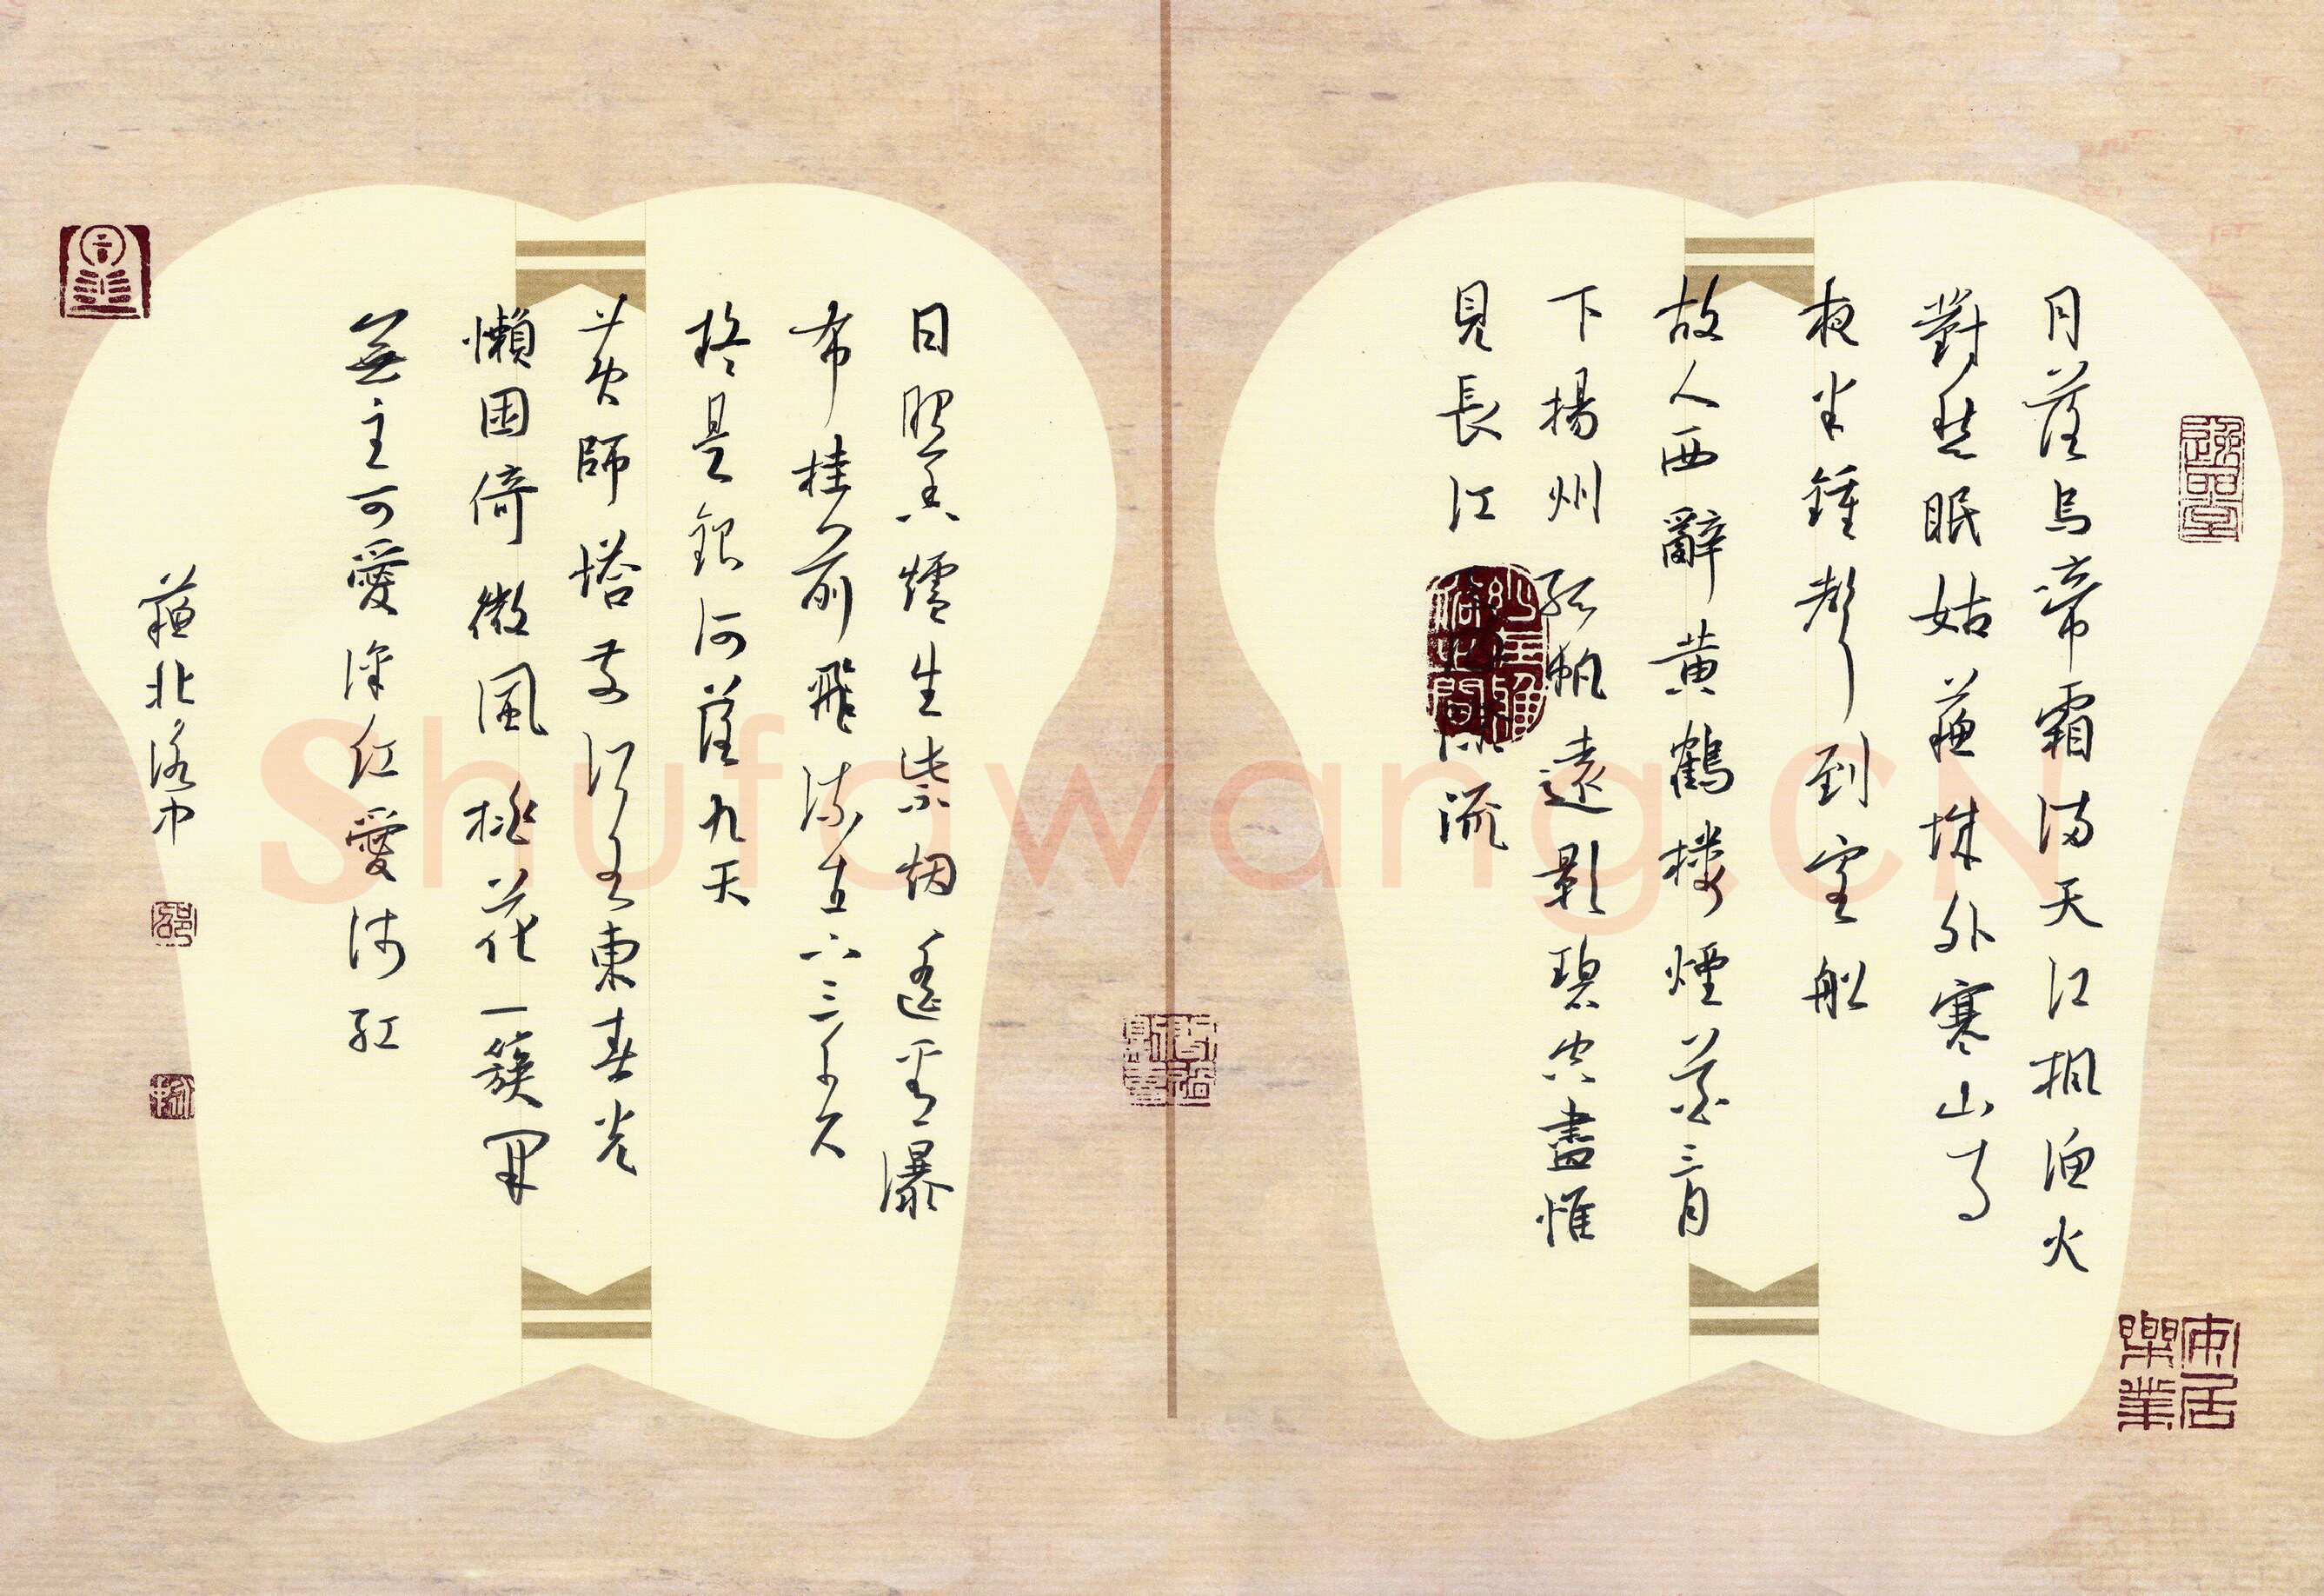 月落烏啼霜滿天江楓漁火
對愁眠姑蘇城外寒山寺
夜半鍾聲到客船
故人西辭黄鶴楼煙花三月
下揚州孤帆遠影碧空盡惟
見長江際流
日照香爐生紫烟遙看瀑
布挂前飛流直下三千尺
疑是銀河落九天
黄師塔前江水東春光
懶困倚微風桃花一簇開
無主可愛深紅愛淺紅
蘇北
安居樂業
Shufawang.CN